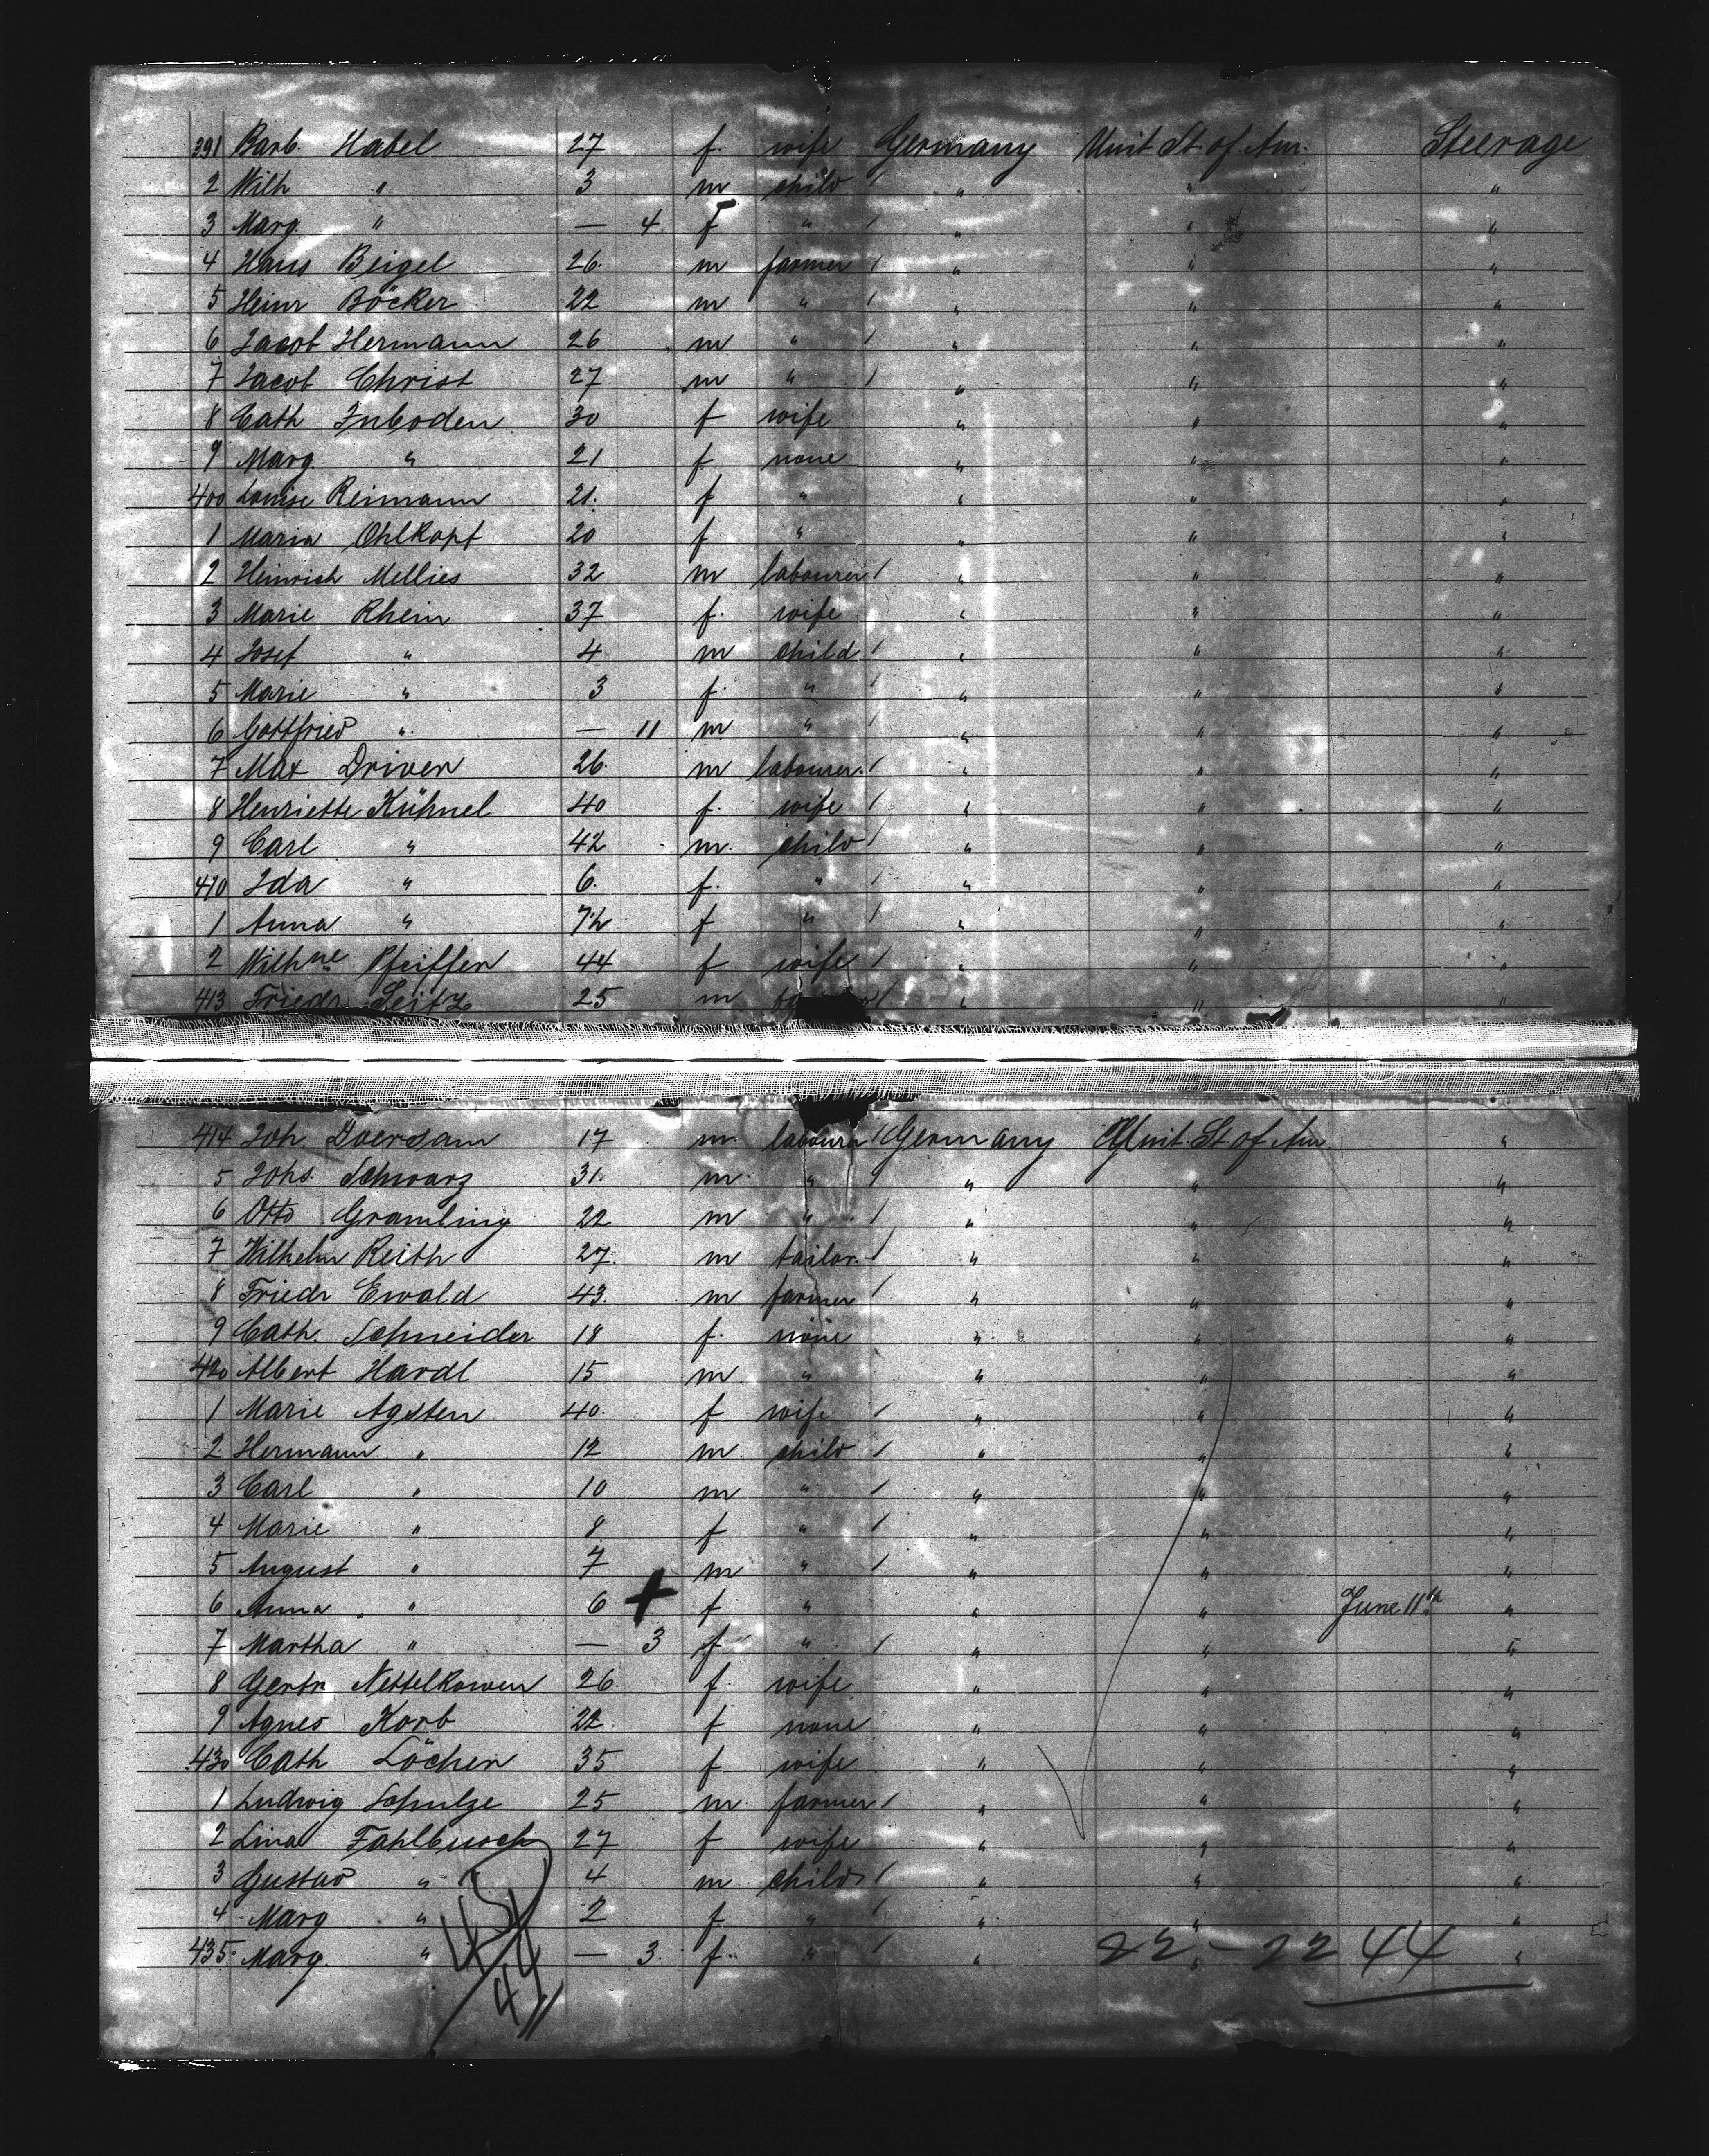 391 Barb. Habel 27 f. wife Germany Unit St. of Am. Steerage
2 Wilh " 3 m child / " " "
3 Marg. " — 4 f " / " " "
4 Hans Beigel 26. m farmer / " " "
5 Heinr Böcker 22 m " / " " "
6 Jacob Hermann 26 m " / " " "
7 Jacob Christ 27 m " / " " "
8 Cath Inboden 30 f wife " " "
9 Marg. " 21 f none " " "
400 Louise Reimann 21. f " " " "
1 Maria Ohlkopf 20 f " " " "
2 Heinrich Mellies 32 m labourer / " " "
3 Marie Rhein 37 f. wife " " "
4 Josef " 4 m child / " " "
5 Marie " 3 f. " / " " "
6 Gottfried " — 11 m " / " " "
7 Max Driver 26. m labourer. / " " "
8 Henriette Kühnel 40 f. wife / " " "
9 Carl " 42 m. child / " " "
410 Ida " 6. f. " / " " "
1 Anna " f " / " " "
2 Wilhne Pfeiffer 44 f wife / " " "
413 Friedr. Seitz 25 m / " " "
414 Joh. Doersam 17 m. labourer / Germany Unit. St. of Am "
5 Johs. Schwarz 31. m. " / " " "
6 Otto Gramling 22 m " / " " "
7 Wilhelm Reith 27. m tailor. / " " "
8 Friedr Ewald 43. m farmer / " " "
9 Cath. Schneider 18 f. none " " "
420 Albert Hardl 15 m " " " "
1 Marie Agsten 40. f wife / " " "
2 Hermann " 12 m child / " " "
3 Carl " 10 m " / " " "
4 Marie " 8 f " / " " "
5 August " 7 m " / " " "
6 Anna " 6 + f " " " June 11th "
7 Martha " — 3 f " / " " "
8 Gertr. 26. f. wife " " "
9 Agnes Korb 22. f none " " "
430 Cath Löcher 35 f wife " " "
1 Ludwig Schulze 25 m. farmer / " " "
2 Lina Fahlbusch 27 f wife " " "
3 Gustav " 4 m child / " " "
4 Marg " 2 f " / " " "
435. Marg. " — 3. f. " / " " "
45 22 - 22 44
44